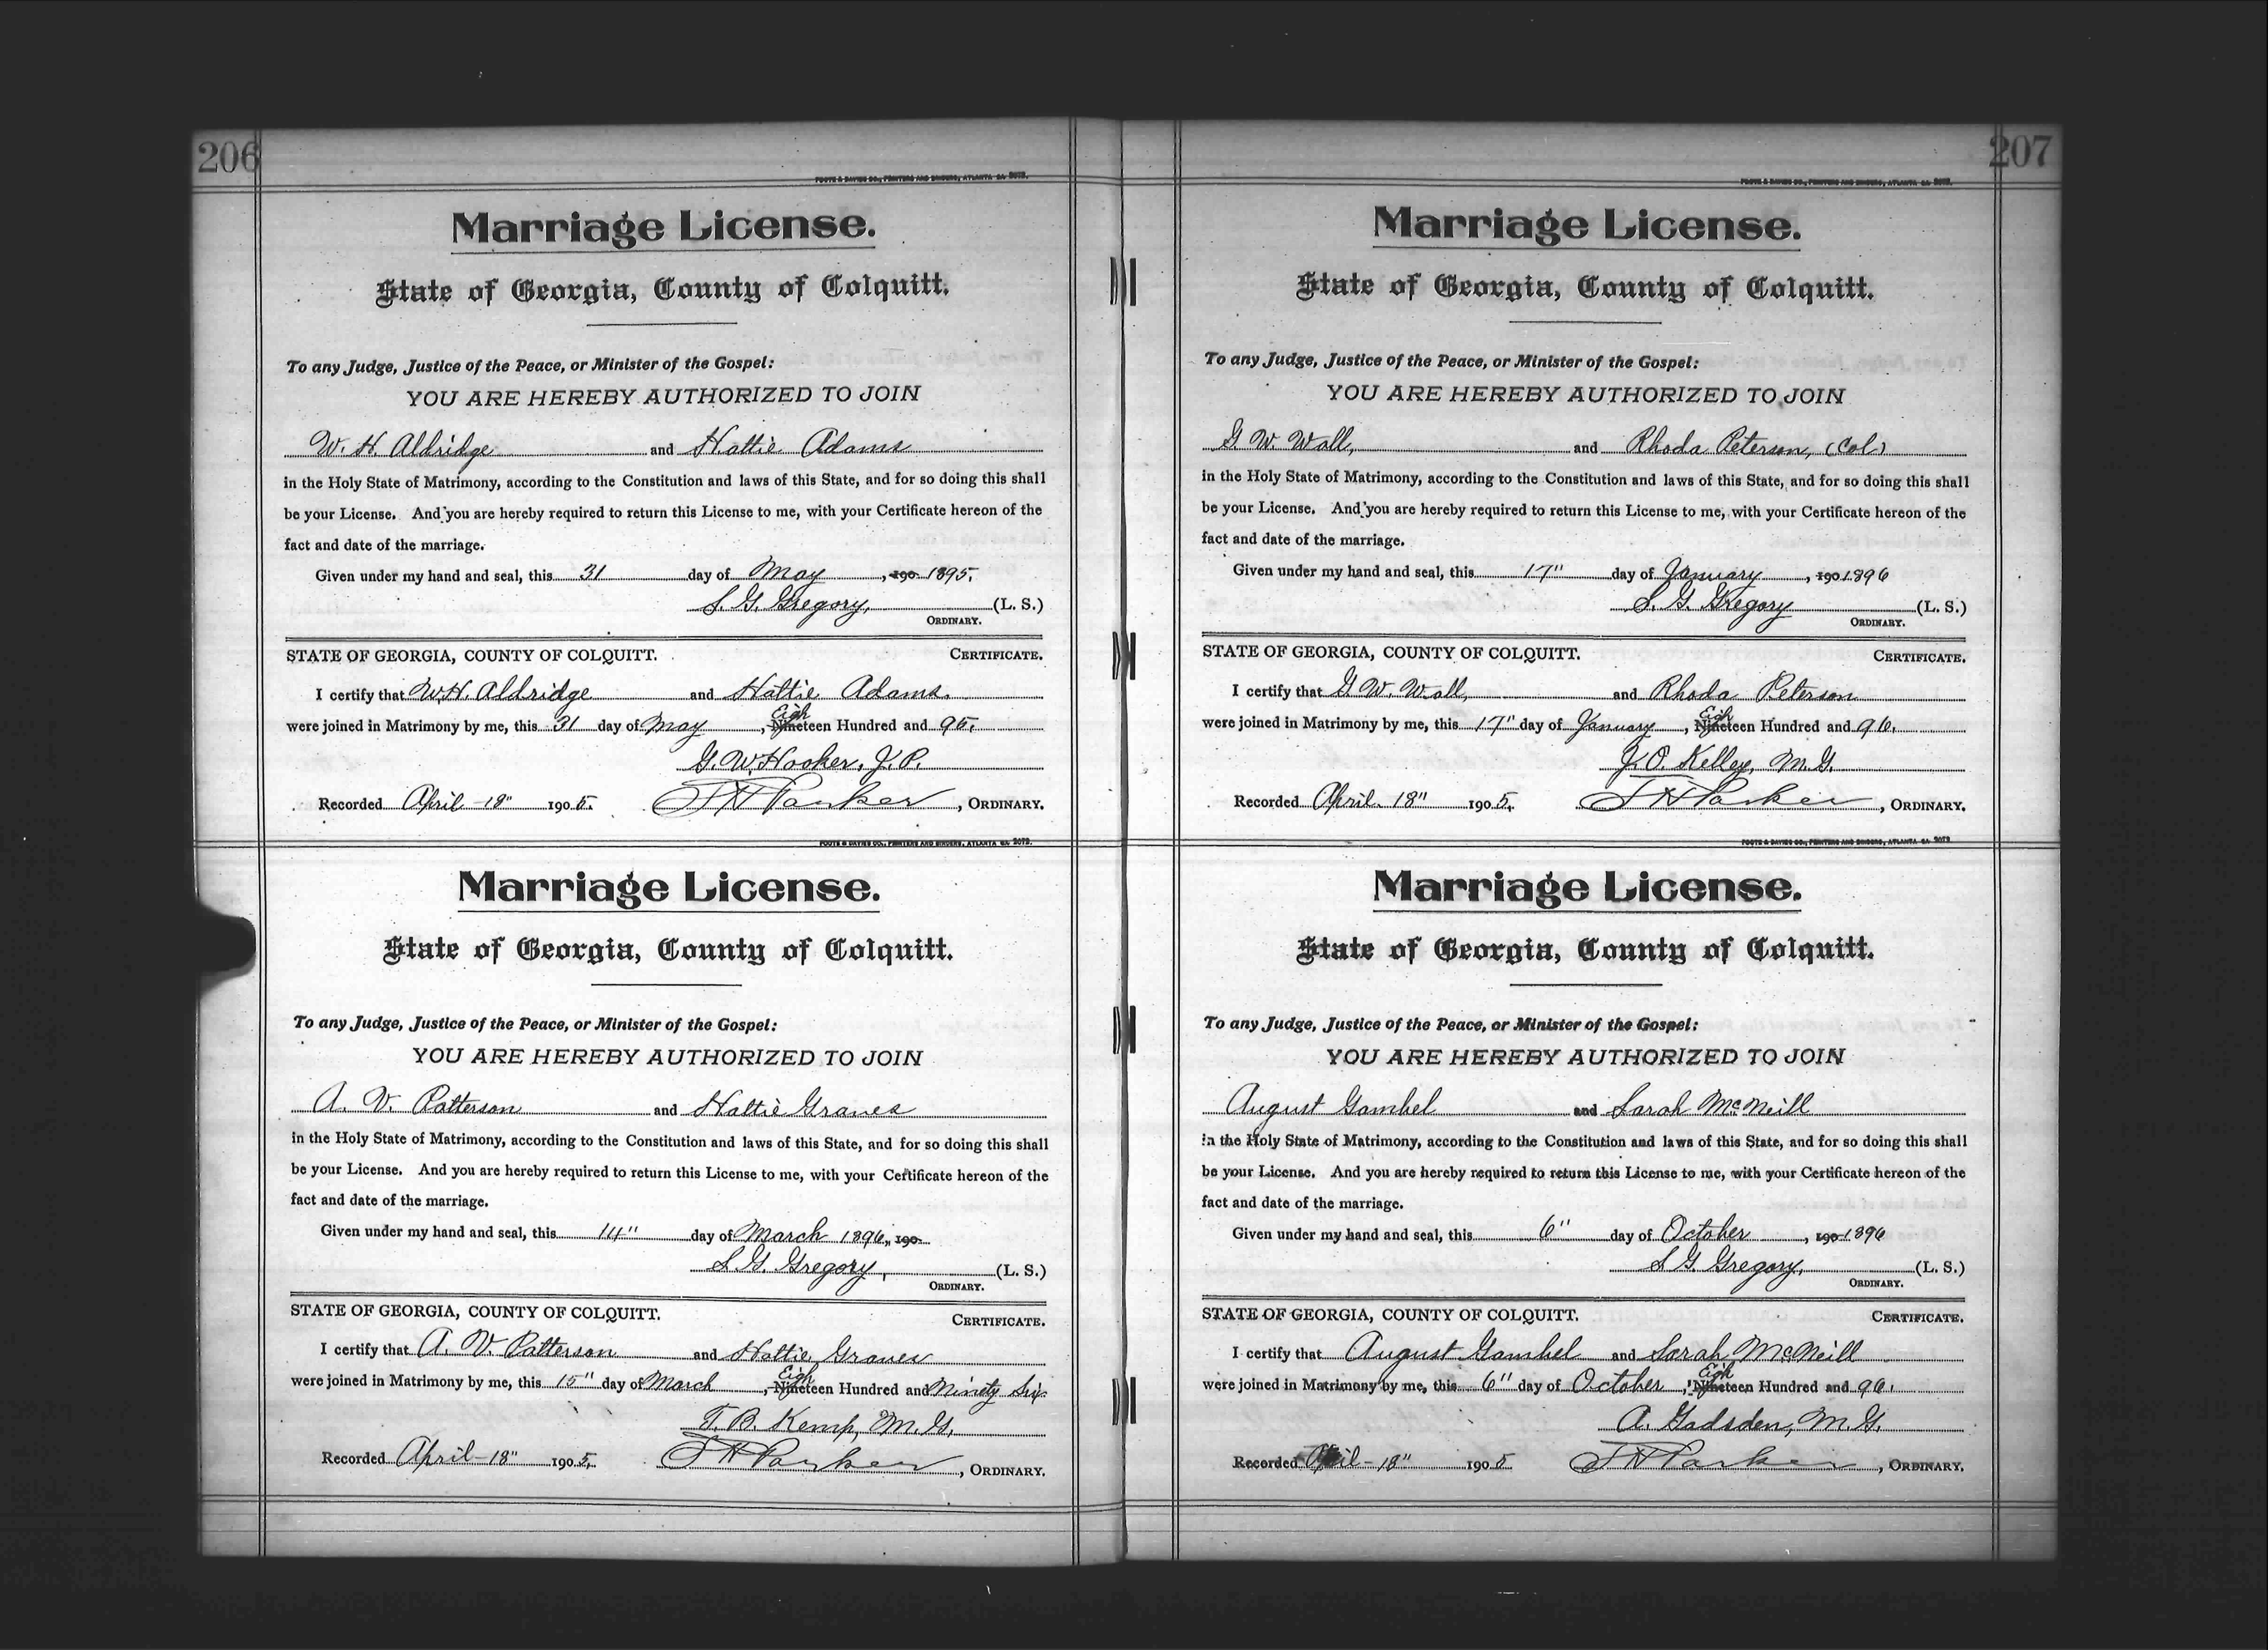 206
FOOTE & DAVIES CO., PRINTERS AND BINDERS, ATLANTA GA. 2072.
Marriage License.
State of Georgia, County of Colquitt.
To any Judge, Justice of the Peace, or Minister of the Gospel:
YOU ARE HEREBY AUTHORIZED TO JOIN
W. H. Aldridge and Hattie Adams
in the Holy State of Matrimony, according to the Constitution and laws of this State, and for so doing this shall
be your License. And you are hereby required to return this License to me, with your Certificate hereon of the
fact and date of the marriage.
Given under my hand and seal, this 31 day of May, 190 1895.
S. G. Gregory, (L. S.)
ORDINARY.
STATE OF GEORGIA, COUNTY OF COLQUITT. CERTIFICATE.
I certify that W. H. Aldridge and Hattie Adams.
Eigh
were joined in Matrimony by me, this 31 day of May, Nineteen Hundred and 95.
G. W. Hooker, J. P.
Recorded April - 18" 1905. J H Parker, ORDINARY.
FOOTE & DAVIES CO., PRINTERS AND BINDERS, ATLANTA GA. 2072.
Marriage License.
State of Georgia, County of Colquitt.
To any Judge, Justice of the Peace, or Minister of the Gospel:
YOU ARE HEREBY AUTHORIZED TO JOIN
A. V. Patterson and Hattie Graves
in the Holy State of Matrimony, according to the Constitution and laws of this State, and for so doing this shall
be your License. And you are hereby required to return this License to me, with your Certificate hereon of the
fact and date of the marriage.
Given under my hand and seal, this 14" day of March 1896, 190
S. G. Gregory, (L. S.)
ORDINARY.
STATE OF GEORGIA, COUNTY OF COLQUITT. CERTIFICATE.
I certify that A. V. Patterson and Hattie Graves
Eigh
were joined in Matrimony by me, this 15" day of March, Nineteen Hundred and Ninety Six
T. B. Kemp, M. G.
Recorded April - 18" 1905. J H Parker, ORDINARY.
207
FOOTE & DAVIES CO., PRINTERS AND BINDERS, ATLANTA GA. 2072.
Marriage License.
State of Georgia, County of Colquitt.
To any Judge, Justice of the Peace, or Minister of the Gospel:
YOU ARE HEREBY AUTHORIZED TO JOIN
G. W. Wall, and Rhoda Peterson, (Col)
in the Holy State of Matrimony, according to the Constitution and laws of this State, and for so doing this shall
be your License. And you are hereby required to return this License to me, with your Certificate hereon of the
fact and date of the marriage.
Given under my hand and seal, this 17" day of January, 190 1896
S. G. Gregory (L. S.)
ORDINARY.
STATE OF GEORGIA, COUNTY OF COLQUITT. CERTIFICATE.
I certify that G. W. Wall, and Rhoda Peterson
Eigh
were joined in Matrimony by me, this 17" day of January, Nineteen Hundred and 96.
J. O. Kelley, M. G.
Recorded April. 18" 1905. J H Parker, ORDINARY.
FOOTE & DAVIES CO., PRINTERS AND BINDERS, ATLANTA GA. 2072.
Marriage License.
State of Georgia, County of Colquitt.
To any Judge, Justice of the Peace, or Minister of the Gospel:
YOU ARE HEREBY AUTHORIZED TO JOIN
August Gambel and Sarah McNeill
in the Holy State of Matrimony, according to the Constitution and laws of this State, and for so doing this shall
be your License. And you are hereby required to return this License to me, with your Certificate hereon of the
fact and date of the marriage.
Given under my hand and seal, this 6" day of October, 190 1896
S G Gregory, (L. S.)
ORDINARY.
STATE OF GEORGIA, COUNTY OF COLQUITT. CERTIFICATE.
I certify that August Gambel and Sarah McNeill
Eigh
were joined in Matrimony by me, this 6" day of October, Nineteen Hundred and 96.
A. Gadsden, M. G.
Recorded April - 18" 1905 J H Parker, ORDINARY.